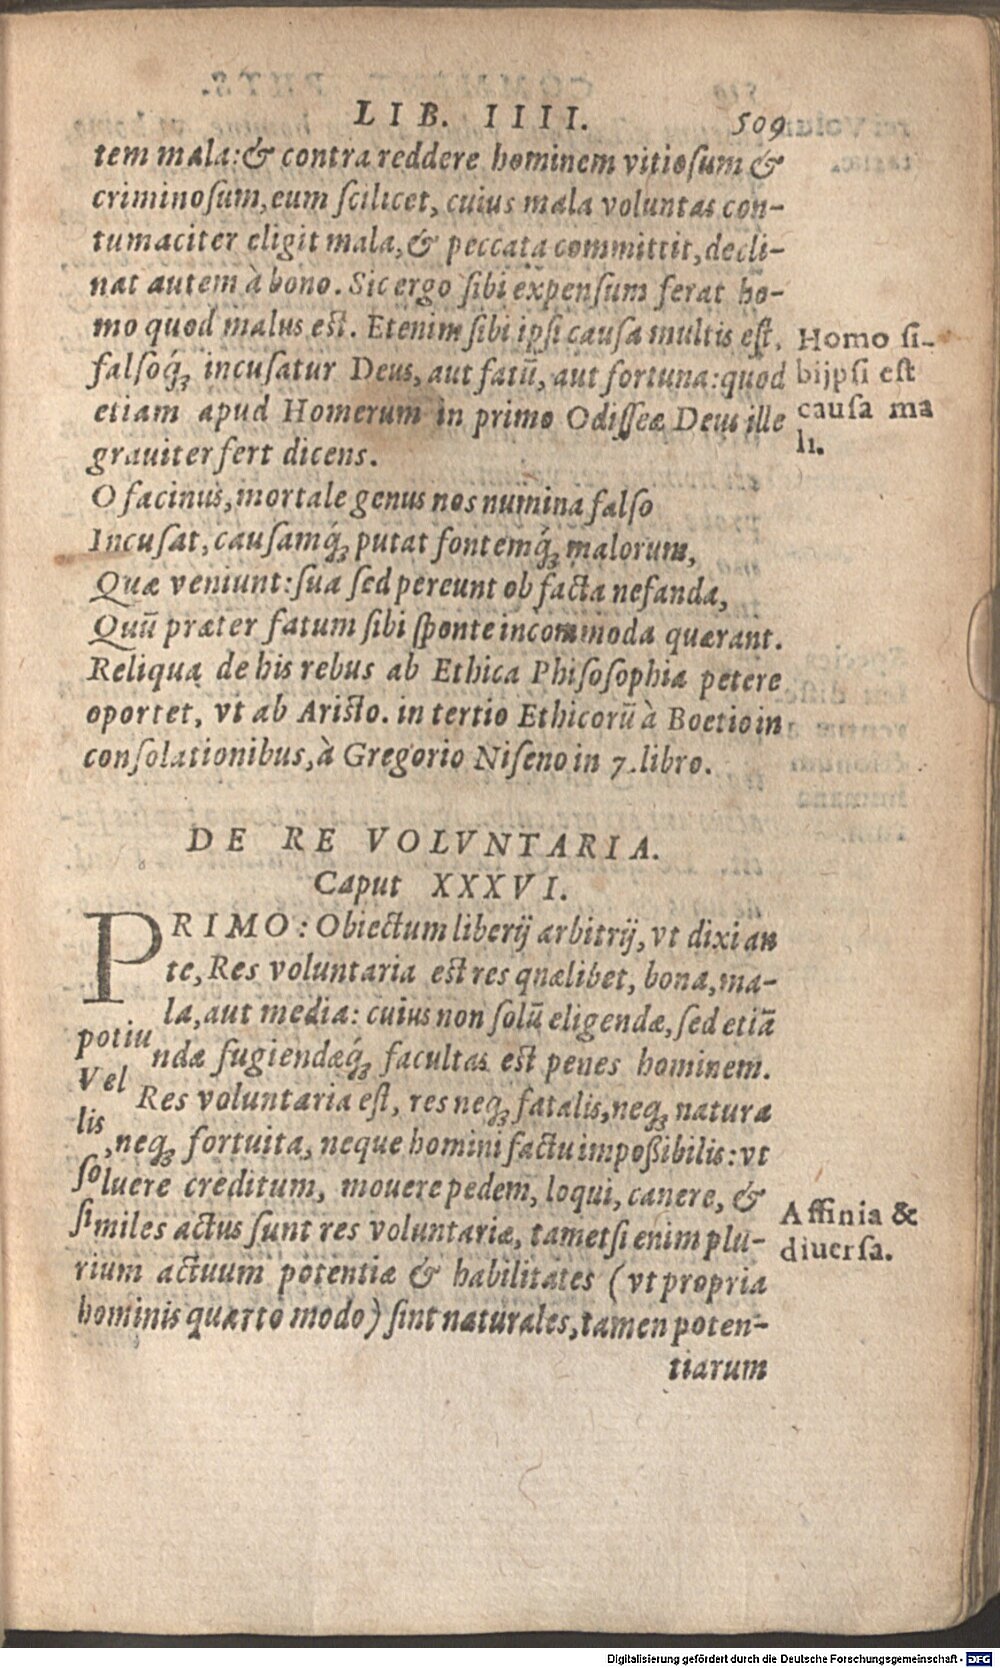 LIB. IIII. 509
tem mala: & contra reddere hominem vitiosum &
criminosum, eum scilicet, cuius mala voluntas con-
tumaciter eligit mala, & peccata committit, decli-
nat autem à bono. Sic ergo sibi expensum ferat ho-
mo quod malus est. Etenim sibi ipsi causa multis est,
falsoq́ꝫ incusatur Deus, aut fatū, aut fortuna: quod
etiam apud Homerum in primo Odisseæ Deus ille
grauiter fert dicens.
Homo si-
bijpsi est
causa ma
li.
O facinus, mortale genus nos numina falso
Incusat, causamq́ꝫ putat fontemq́ꝫ malorum,
Quæ veniunt: sua sed pereunt ob facta nefanda,
Quū præter fatum sibi sponte incommoda quærant.
Reliqua de his rebus ab Ethica Phisosophia petere
oportet, vt ab Aristo. in tertio Ethicorū à Boetio in
consolationibus, à Gregorio Niseno in 7. libro.
DE RE VOLVNTARIA.
Caput XXXVI.
PRIMO: Obiectum liberij arbitrij, vt dixi an
te, Res voluntaria est res quælibet, bona, ma-
la, aut media: cuius non solū eligendæ, sed etiā
potiundæ fugiendæq́ꝫ facultas est penes hominem.
Vel Res voluntaria est, res neqꝫ fatalis, neqꝫ natura
lis, neqꝫ fortuita, neque homini factu impoßibilis: vt
soluere creditum, mouere pedem, loqui, canere, &
similes actus sunt res voluntariæ, tametsi enim plu-
rium actuum potentiæ & habilitates (vt propria
hominis quarto modo) sint naturales, tamen poten-
Affinia &
diuersa.
tiarum
Digitalisierung gefördert durch die Deutsche Forschungsgemeinschaft - DFG